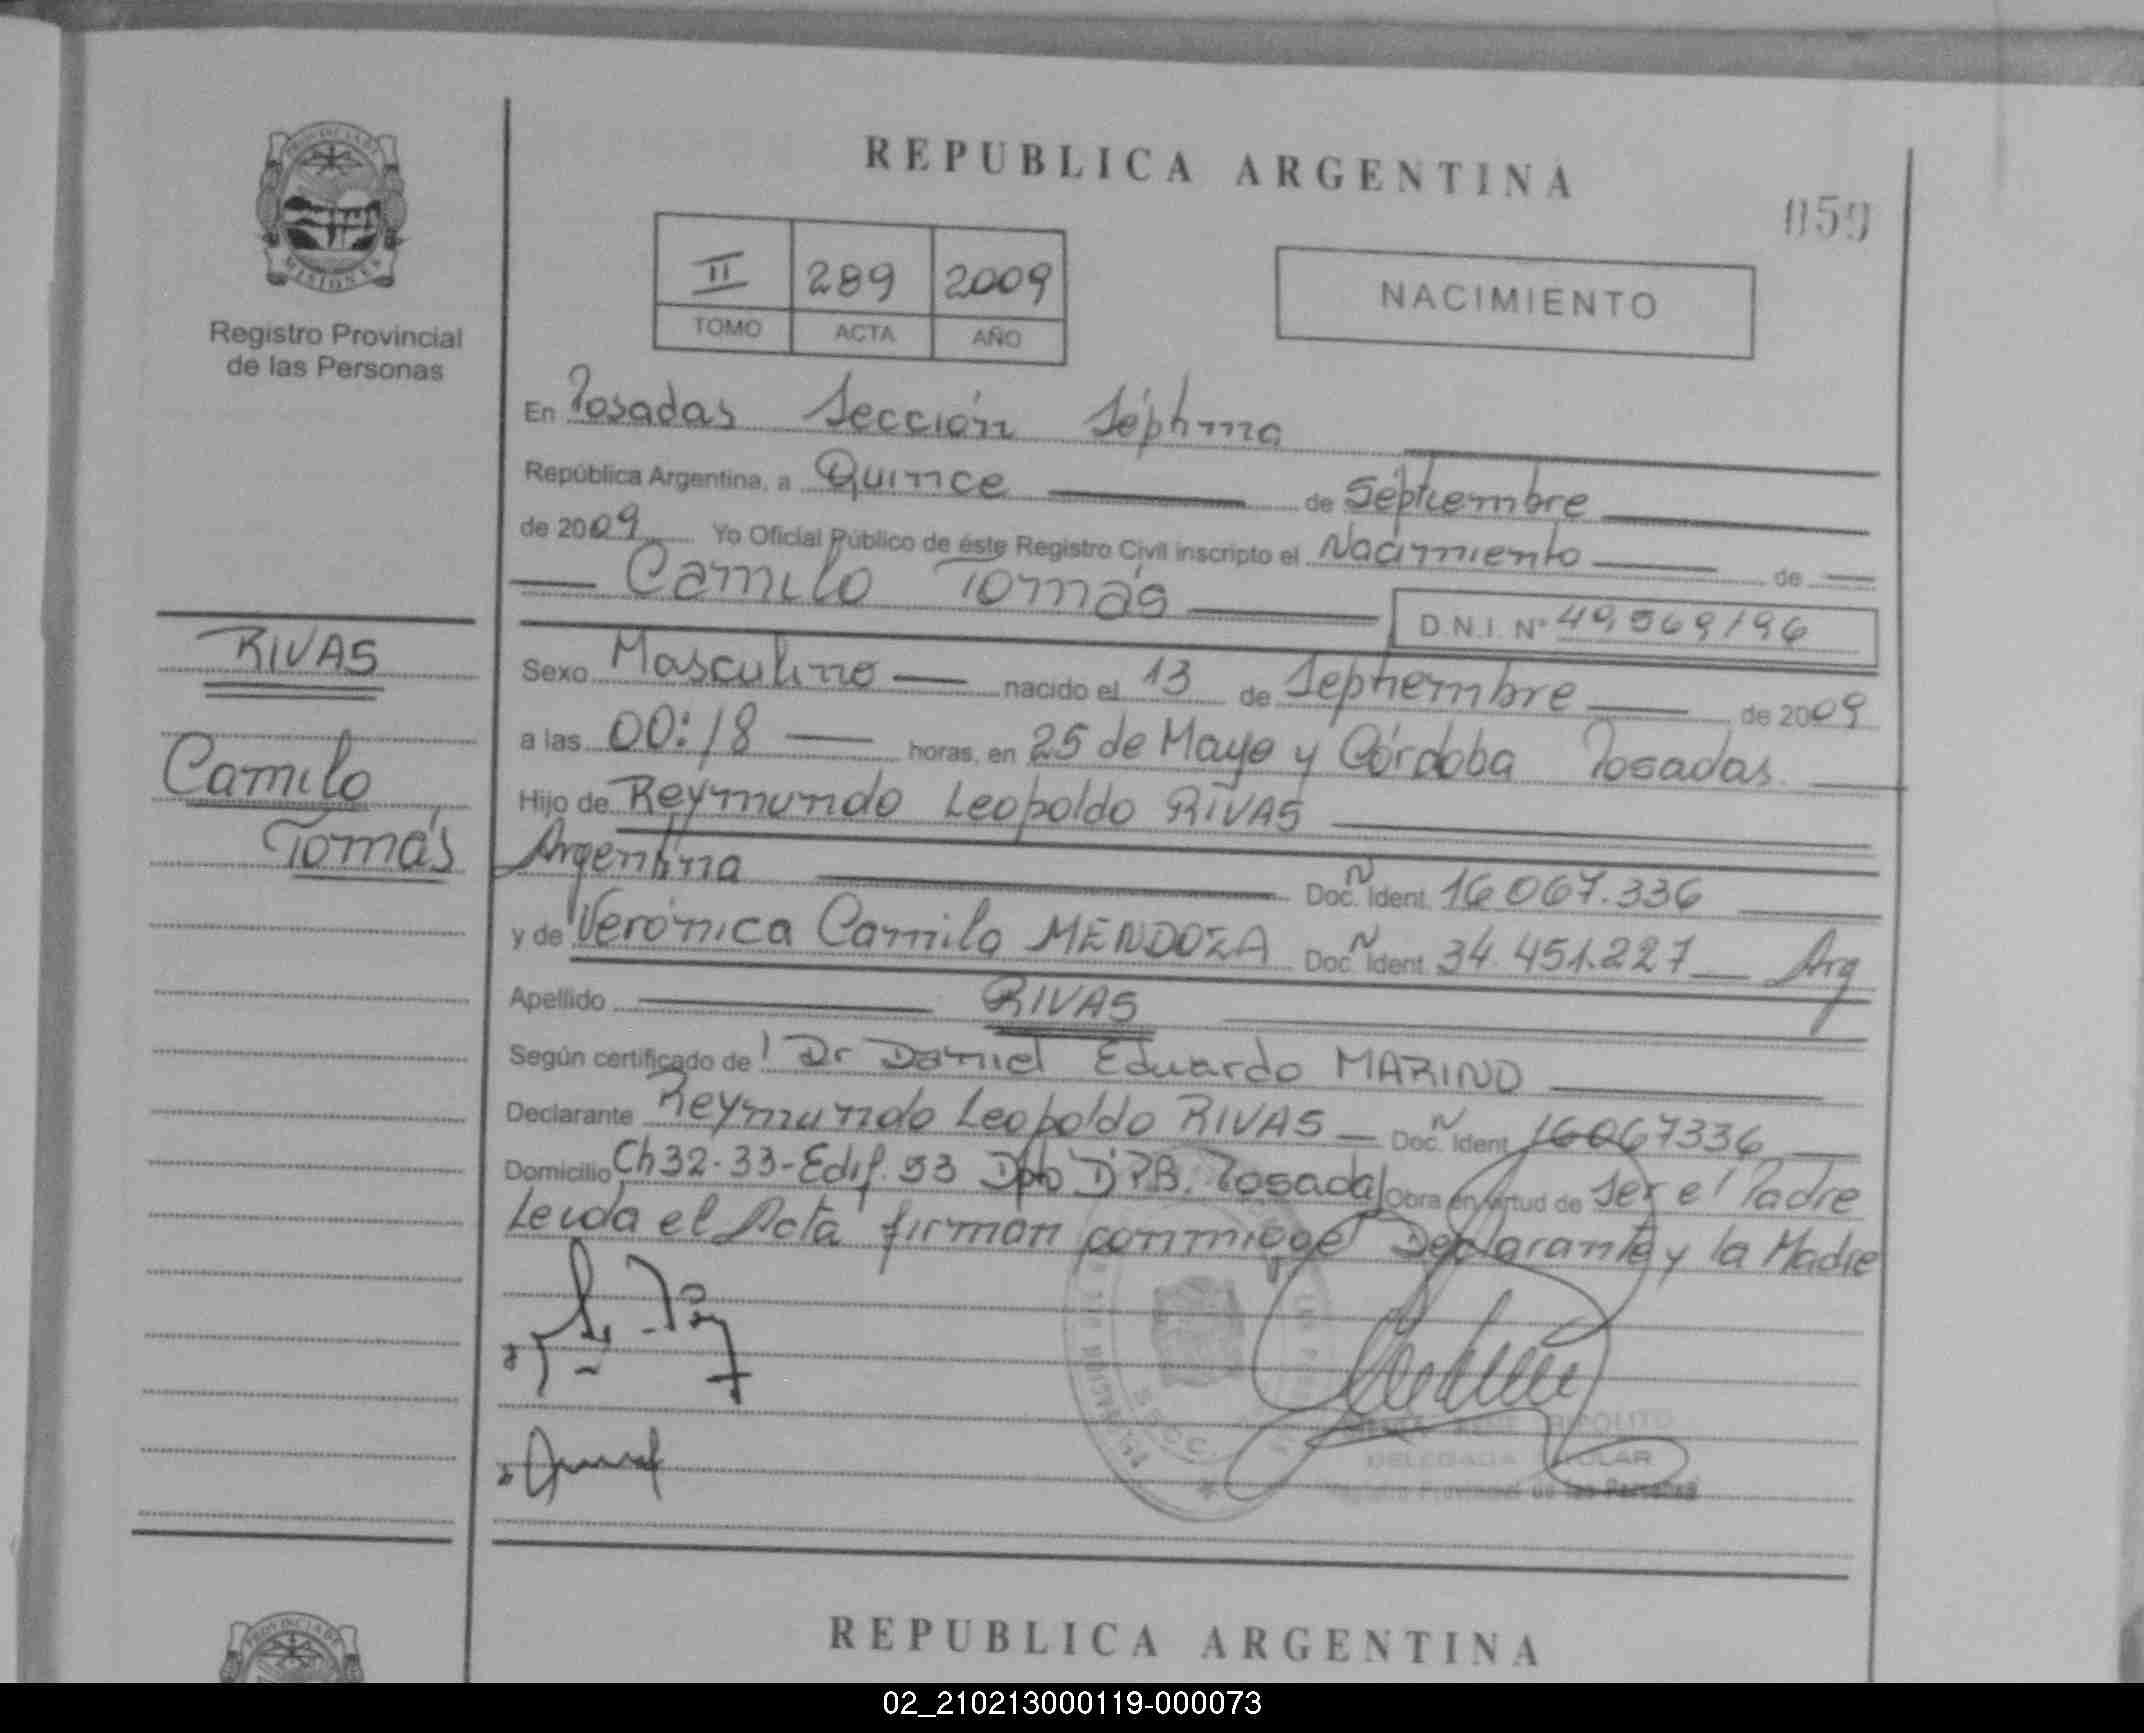 PROVINCIA DE
MISIONES
Registro Provincial
de las Personas
RIVAS
Camilo
Tomás
REPUBLICA ARGENTINA
059
II 289 2009
TOMO ACTA AÑO
NACIMIENTO
En Posadas Sección Séptima
República Argentina, a Quince de Septiembre
de 2009 Yo Oficial Público de éste Registro Civil inscripto el Nacimiento de
Camilo Tomás
D.N.I. Nº 49.569196
Sexo Masculino nacido el 13 de Septiembre de 2009
a las 00:18 horas, en 25 de Mayo y Córdoba Posadas.
Hijo de Reymundo Leopoldo RIVAS
Argentina Doc. N Ident. 16067.336
y de Verónica Camila MENDOZA Doc. N Ident. 34.451.227 Arg
Apellido RIVAS
Según certificado de Dr Daniel Eduardo MARINO
Declarante Reymundo Leopoldo RIVAS Doc. N Ident. 16067336
Domicilio Ch 32-33-Edif. 53 Dpto "D" PB. Posadas Obra en virtud de Ser el Padre
Leida el Acta firman conmigo el Declarante y la Madre
HIPOLITO
DELEGADA TITULAR
Registro Provincial de las Personas
PROVINCIA DE
REPUBLICA ARGENTINA
02_210213000119-000073